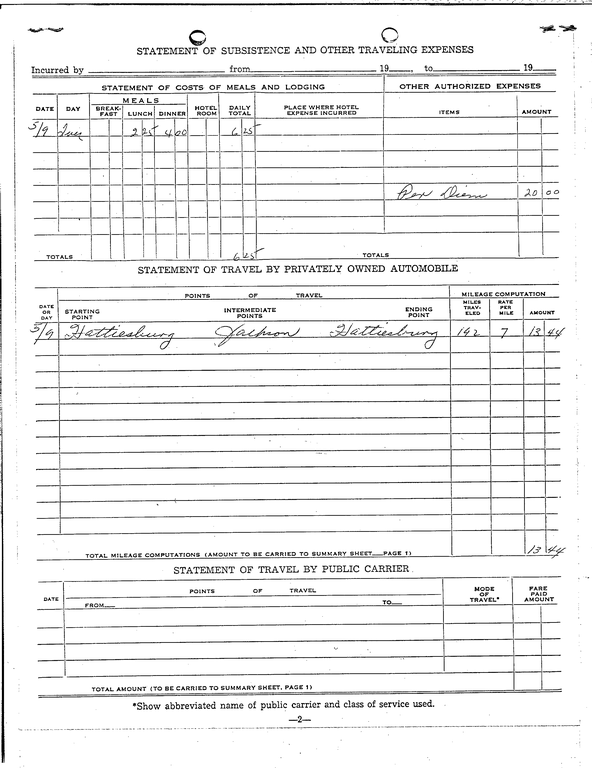 STATEMENT OF SUBSISTENCE AND OTHER TRAVELING EXPENSES
Incurred by from 19 , to 19
STATEMENT OF COSTS OF MEALS AND LODGING OTHER AUTHORIZED EXPENSES
DATE DAY MEALS BREAK-FAST LUNCH DINNER HOTEL ROOM DAILY TOTAL PLACE WHERE HOTEL EXPENSE INCURRED ITEMS AMOUNT
5/9 Tues 2 25 4 00 6 25
Per Diem 20 00
TOTALS 6 25 TOTALS
STATEMENT OF TRAVEL BY PRIVATELY OWNED AUTOMOBILE
POINTS OF TRAVEL MILEAGE COMPUTATION
DATE OR DAY STARTING POINT INTERMEDIATE POINTS ENDING POINT MILES TRAV-ELED RATE PER MILE AMOUNT
5/9 Hattiesburg Jackson Hattiesburg 192 7 13 44
TOTAL MILEAGE COMPUTATIONS (AMOUNT TO BE CARRIED TO SUMMARY SHEET—PAGE 1) 13 44
STATEMENT OF TRAVEL BY PUBLIC CARRIER
DATE POINTS OF TRAVEL MODE OF TRAVEL* FARE PAID AMOUNT
FROM— TO—
TOTAL AMOUNT (TO BE CARRIED TO SUMMARY SHEET, PAGE 1)
*Show abbreviated name of public carrier and class of service used.
—2—